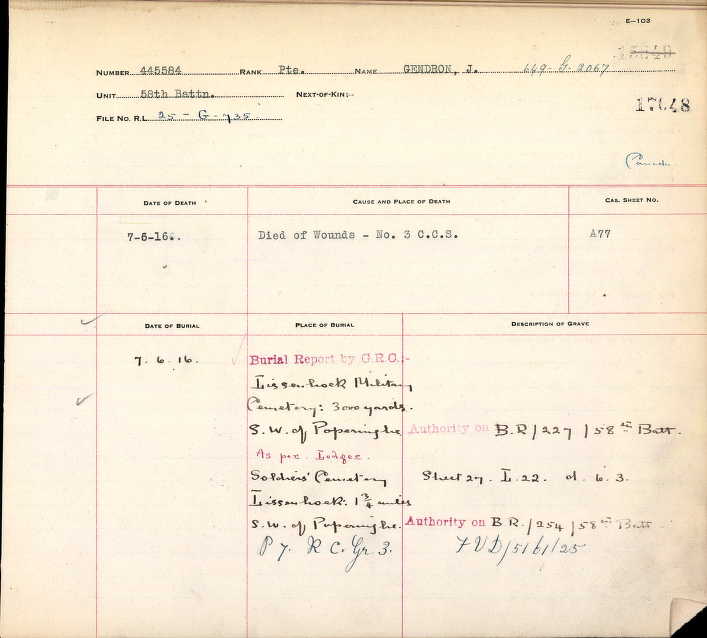 E-103
NUMBER 445584 RANK Pte. NAME GENDRON, J. 649-G-2067
UNIT 58th Battn. NEXT-OF-KIN:-
17048
FILE NO. R.L. 25-G-735
Canada
DATE OF DEATH CAUSE AND PLACE OF DEATH CAS. SHEET NO.
7-6-16. Died of Wounds - No. 3 C.C.S. A77
DATE OF BURIAL PLACE OF BURIAL DESCRIPTION OF GRAVE
7. 6. 16. Burial Report by G.R.C:-
Lissenhoek Military
Cemetery: 3000 yards.
S.W. of Poperinghe Authority on B.R/227/58th Batt.
As per Ledger.
Soldiers' Cemetery Sheet 27. L. 22. d. 6. 3.
Lissenhoek: 1 3/4 miles
S.W. of Poperinghe. Authority on B.R./254/58th Batt
P 7. R C. Gr 3.